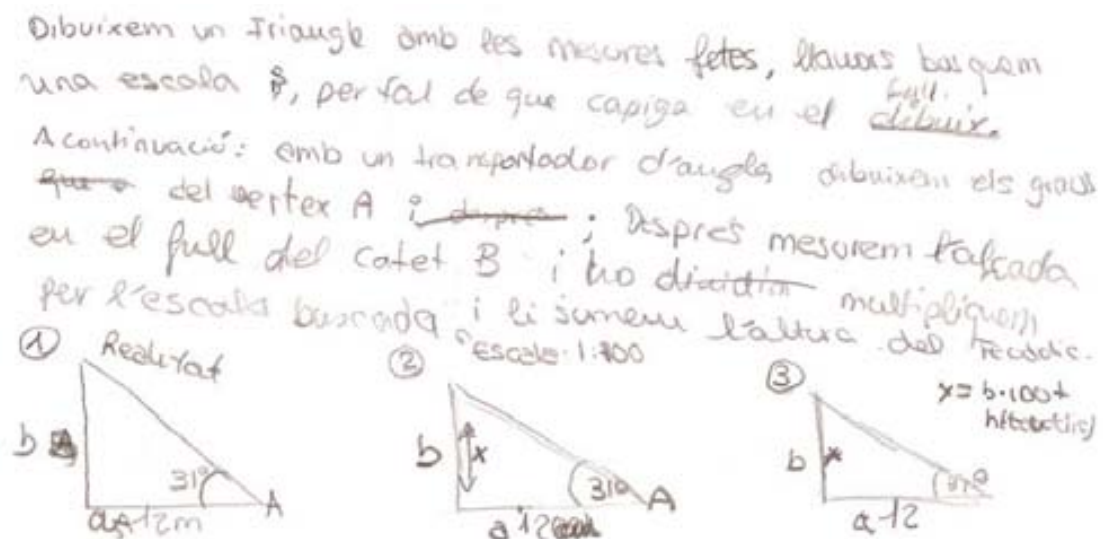 Dibuixem un triangle amb les mesures fetes, llavors busquem
una escala, per tal de que capiga en el full.
dibuix.
A continuació: amb un transportador d'angles dibuixem els graus
que del vertex A i després ; Després mesurem l'alçada
en el full del catet B i ho dividim multipliquem
per l'escala buscada i li sumem l'altura del
① Realitat
b
31º
A
a 12m
② Escala 1:100
b
x
31º
A
a 12
③
x = b·100+
b
x
31º
a 12